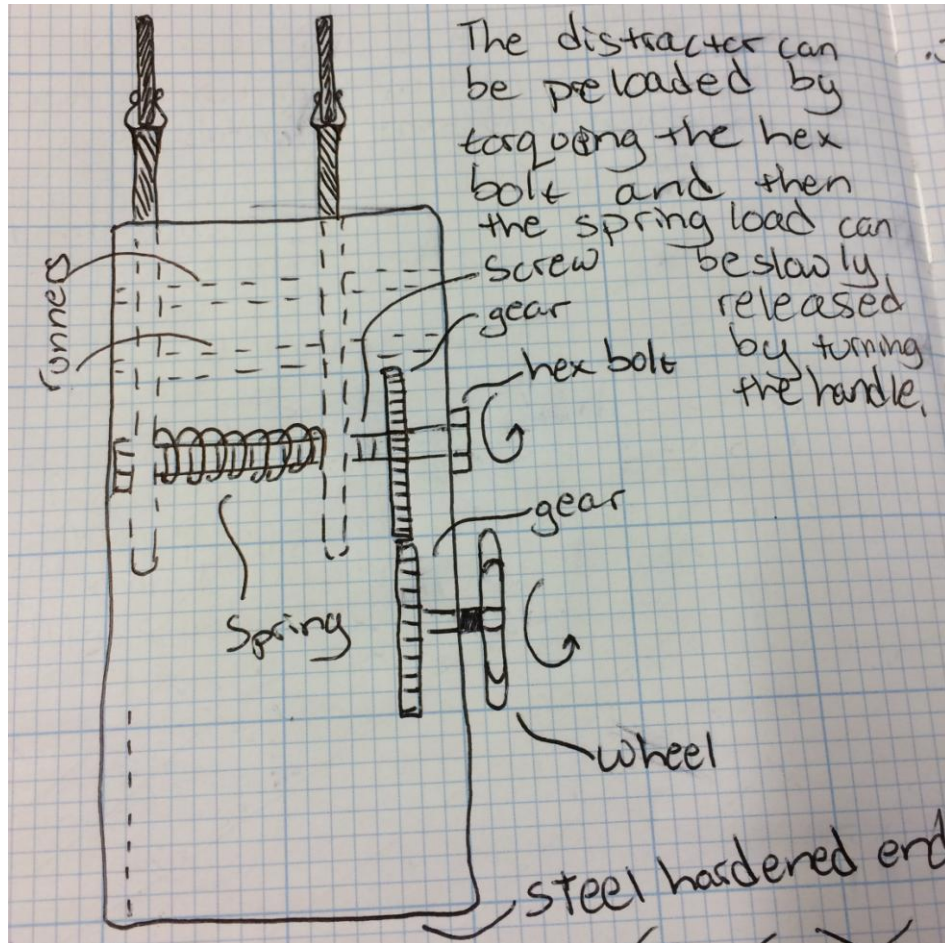 The distractor can
be preloaded by
torqueing the hex
bolt and then
the spring load can
be slowly
released
by turning
the handle.
runners
screw
gear
hex bolt
gear
spring
wheel
steel hardened end